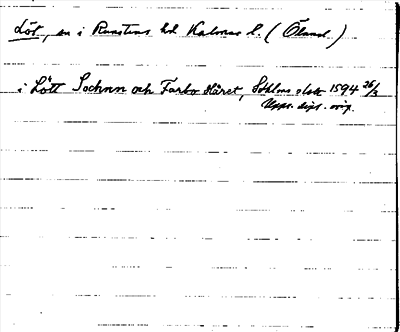 Löt, sn i Runstens hd Kalmar l. (Öland.)
i Lött Sochnn och Farbo Häret, Sthlms slott 1594 26/3
Upps. dipl. orig.